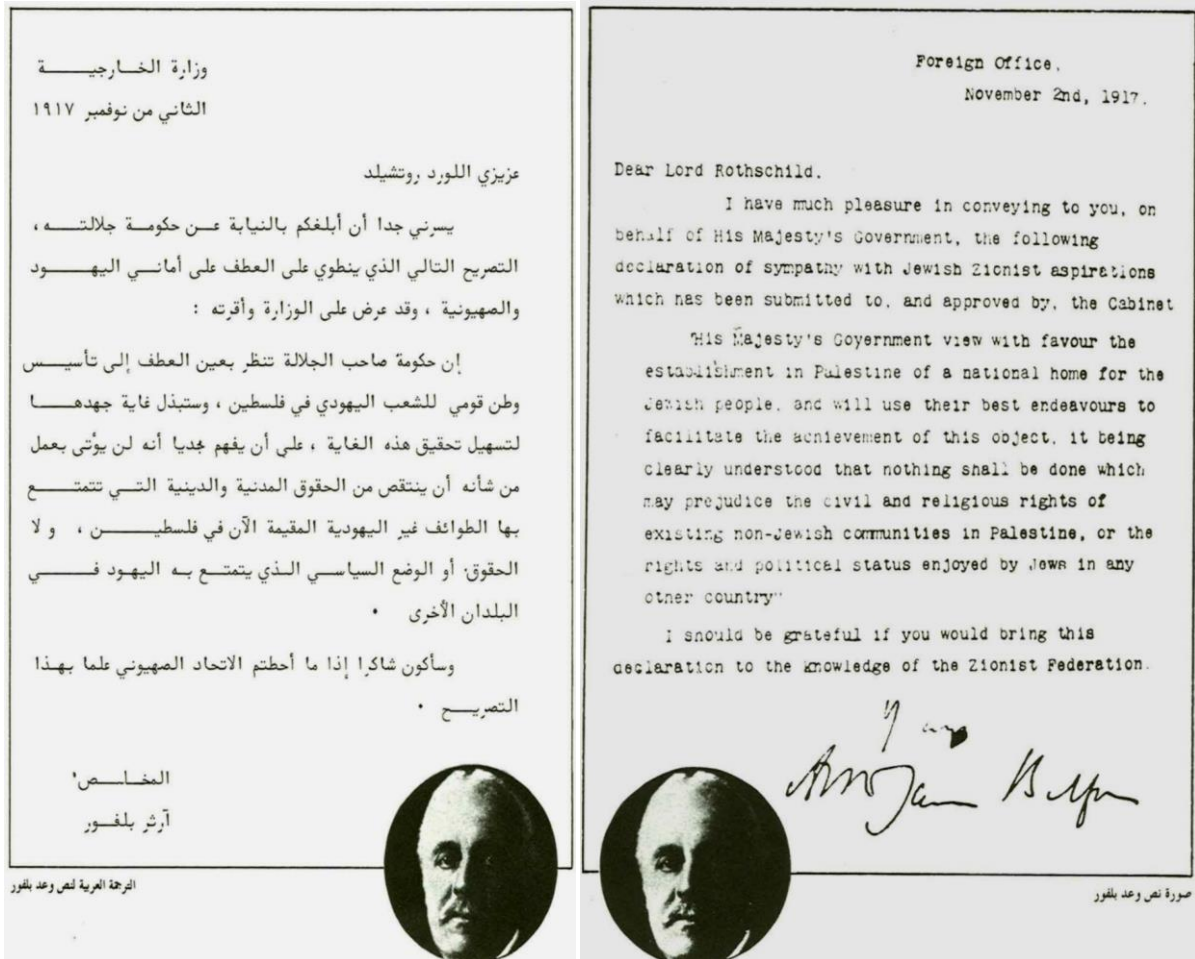 وزارة الخارجية
الثاني من نوفمبر ١٩١٧
عزيزي اللورد روتشيلد
يسرني جدا أن أبلغكم بالنيابة عن حكومة جلالته ،
التصريح التالي الذي ينطوي على العطف على أماني اليهود
والصهيونية ، وقد عرض على الوزارة وأقرته :
إن حكومة صاحب الجلالة تنظر بعين العطف إلى تأسيس
وطن قومي للشعب اليهودي في فلسطين ، وستبذل غاية جهدها
لتسهيل تحقيق هذه الغاية ، على أن يفهم جديا أنه لن يؤتى بعمل
من شأنه أن ينتقص من الحقوق المدنية والدينية التي تتمتع
بها الطوائف غير اليهودية المقيمة الآن في فلسطين ، و لا
الحقوق أو الوضع السياسي الذي يتمتع به اليهود في
البلدان الأخرى .
وسأكون شاكرا إذا ما أحطتم الاتحاد الصهيوني علما بهذا
التصريح .
المخلص
آرثر بلفور
الترجمة العربية لنص وعد بلفور
Foreign Office,
November 2nd, 1917.
Dear Lord Rothschild,
I have much pleasure in conveying to you, on
behalf of His Majesty's Government, the following
declaration of sympathy with Jewish Zionist aspirations
which has been submitted to, and approved by, the Cabinet
"His Majesty's Government view with favour the
establishment in Palestine of a national home for the
Jewish people, and will use their best endeavours to
facilitate the achievement of this object, it being
clearly understood that nothing shall be done which
may prejudice the civil and religious rights of
existing non-Jewish communities in Palestine, or the
rights and political status enjoyed by Jews in any
other country"
I should be grateful if you would bring this
declaration to the knowledge of the Zionist Federation.
صورة نص وعد بلفور